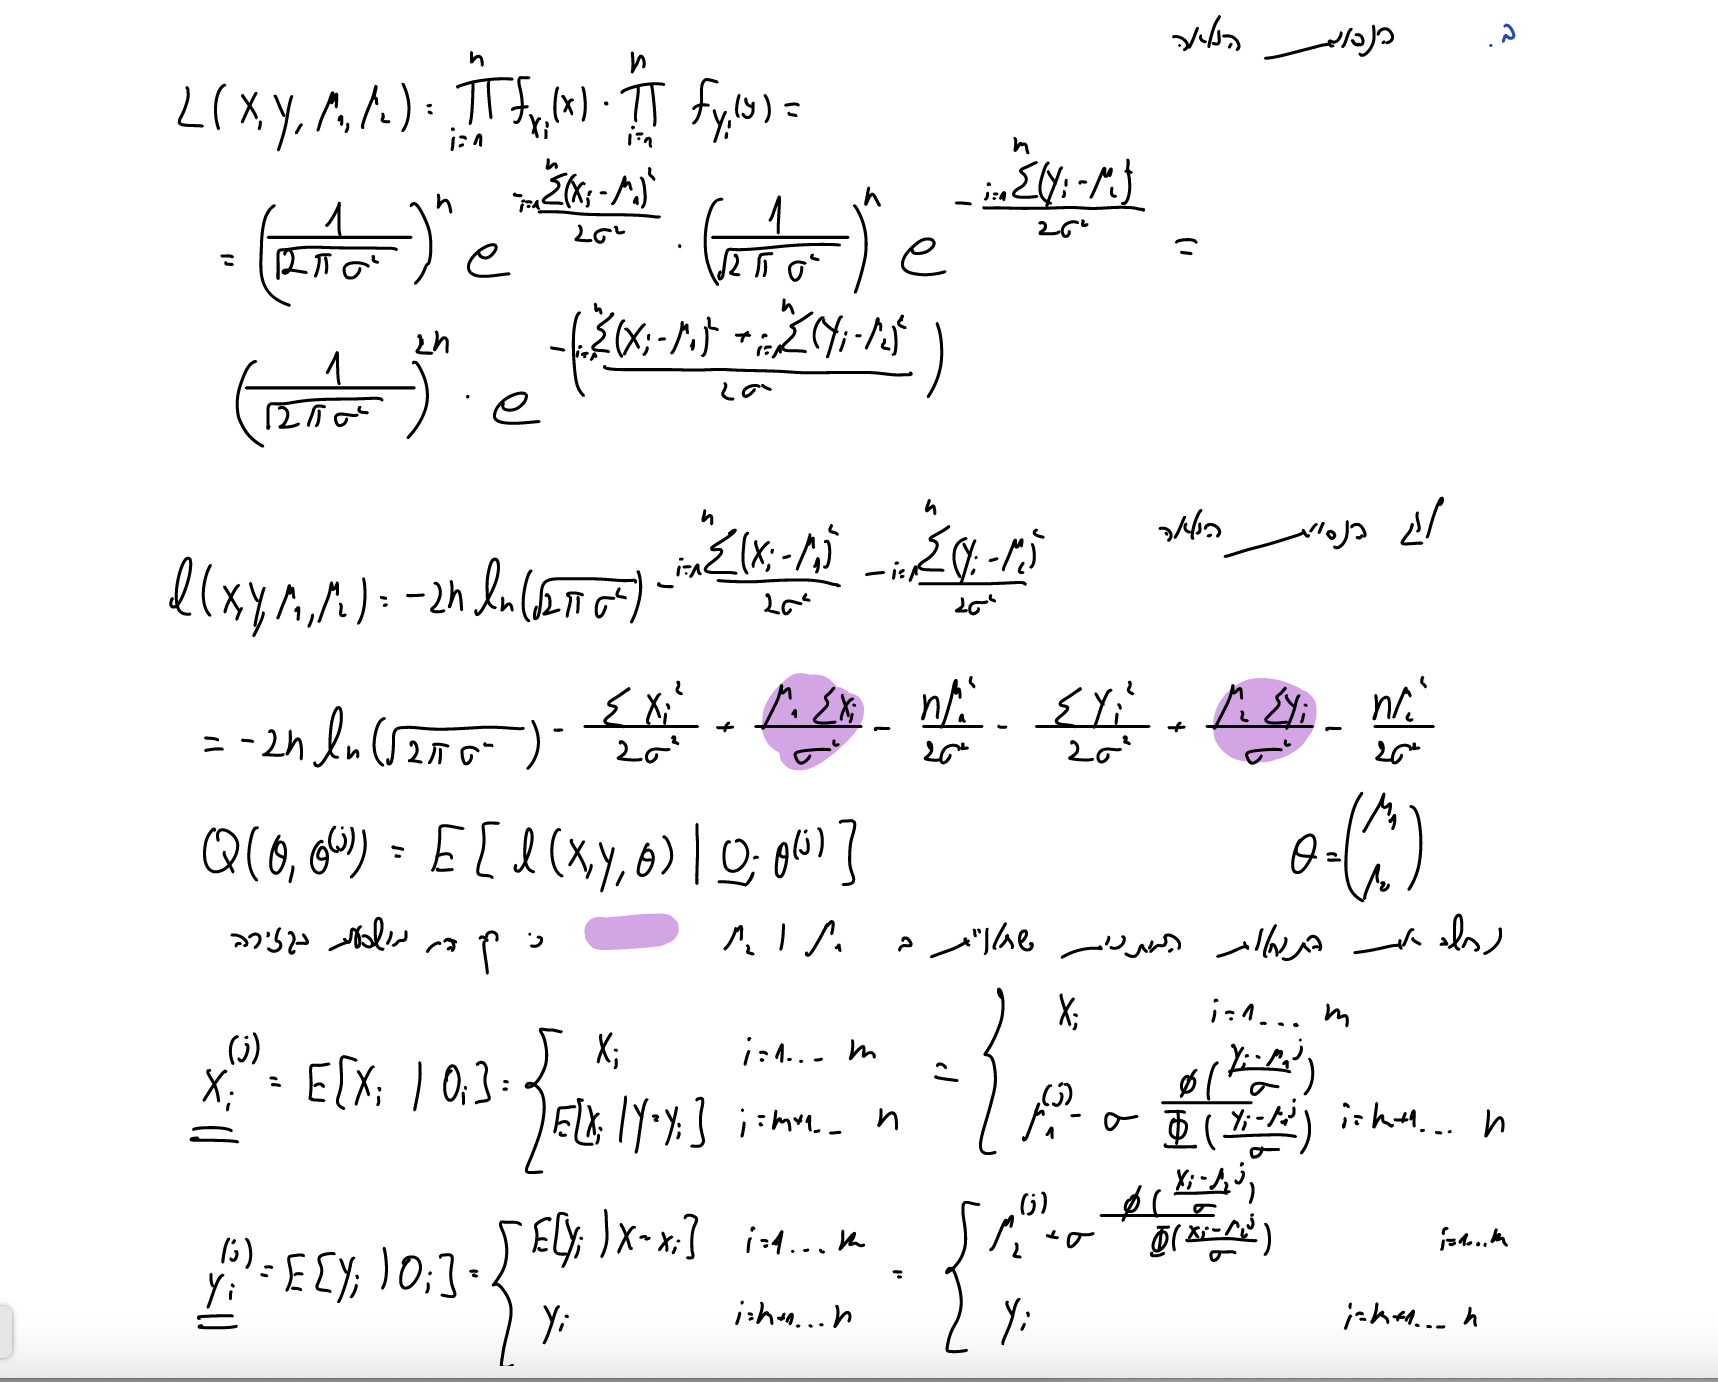 ב. הנראות המלאה
L(x,y,μ₁,μ₂) = ∏_{i=1}^{n} f_{X_i}(x) · ∏_{i=1}^{n} f_{Y_i}(y) =
= (1/√(2πσ²))ⁿ e^{-∑_{i=1}^{n}(x_i-μ₁)²/2σ²} · (1/√(2πσ²))ⁿ e^{-∑_{i=1}^{n}(y_i-μ₂)²/2σ²} =
(1/√(2πσ²))^{2n} · e^{-(∑_{i=1}^{n}(x_i-μ₁)² + ∑_{i=1}^{n}(y_i-μ₂)²)/2σ²}
לוג הנראות המלאה
l(x,y,μ₁,μ₂) = -2n ln(√(2πσ²)) - ∑_{i=1}^{n}(x_i-μ₁)²/2σ² - ∑_{i=1}^{n}(y_i-μ₂)²/2σ²
= -2n ln(√(2πσ²)) - ∑x_i²/2σ² + μ₁∑x_i/σ² - nμ₁²/2σ² - ∑y_i²/2σ² + μ₂∑y_i/σ² - nμ₂²/2σ²
Q(θ,θ^{(j)}) = E[l(x,y,θ) | O; θ^{(j)}] θ = (μ₁ μ₂)
נחשב את התוחלות המותנות ב μ₁ ו μ₂ כי
x_i^{(j)} = E[X_i | O_i] = { x_i i=1...m ; E[x_i | Y=y_i] i=m+1... n } = { x_i i=1... m ; μ₁^{(j)} - σ ϕ((y_i-μ₁^j)/σ)/Φ((y_i-μ₁^j)/σ) i=m+1... n
y_i^{(j)} = E[y_i | O_i] = { E[y_i | X=x_i] i=1...m ; y_i i=m+1...n } = { μ₂^{(j)} + σ ϕ((x_i-μ₂^j)/σ)/Φ((x_i-μ₂^j)/σ) i=1...m ; y_i i=m+1... n